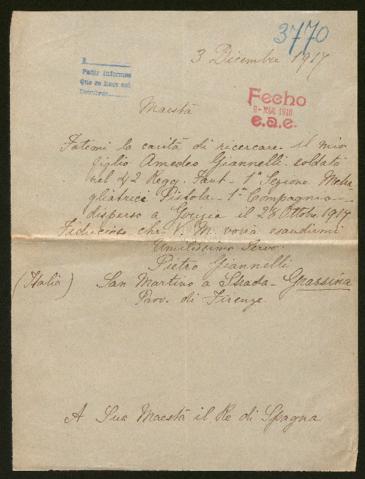 3770
3 Dicembre 1917
Pedir informes
Fecho
9-MAR.1918
e.a.e.
Maestà
Fatemi la carità di ricercare il mio
figlio Amedeo Giannelli soldato
nel 42 Regg. Fant. 1ª Sezione Mitra
gliatrice Pistola - 1ª Compagnia -
disperso a Gorizia il 28 Ottobre 1917
Fiducioso che V. M. vorrà esaudirmi
Umilissimo Servo
Pietro Giannelli
(Italia) San Martino a Strada - Grassina
Prov. di Firenze
A Sua Maestà il Re di Spagna